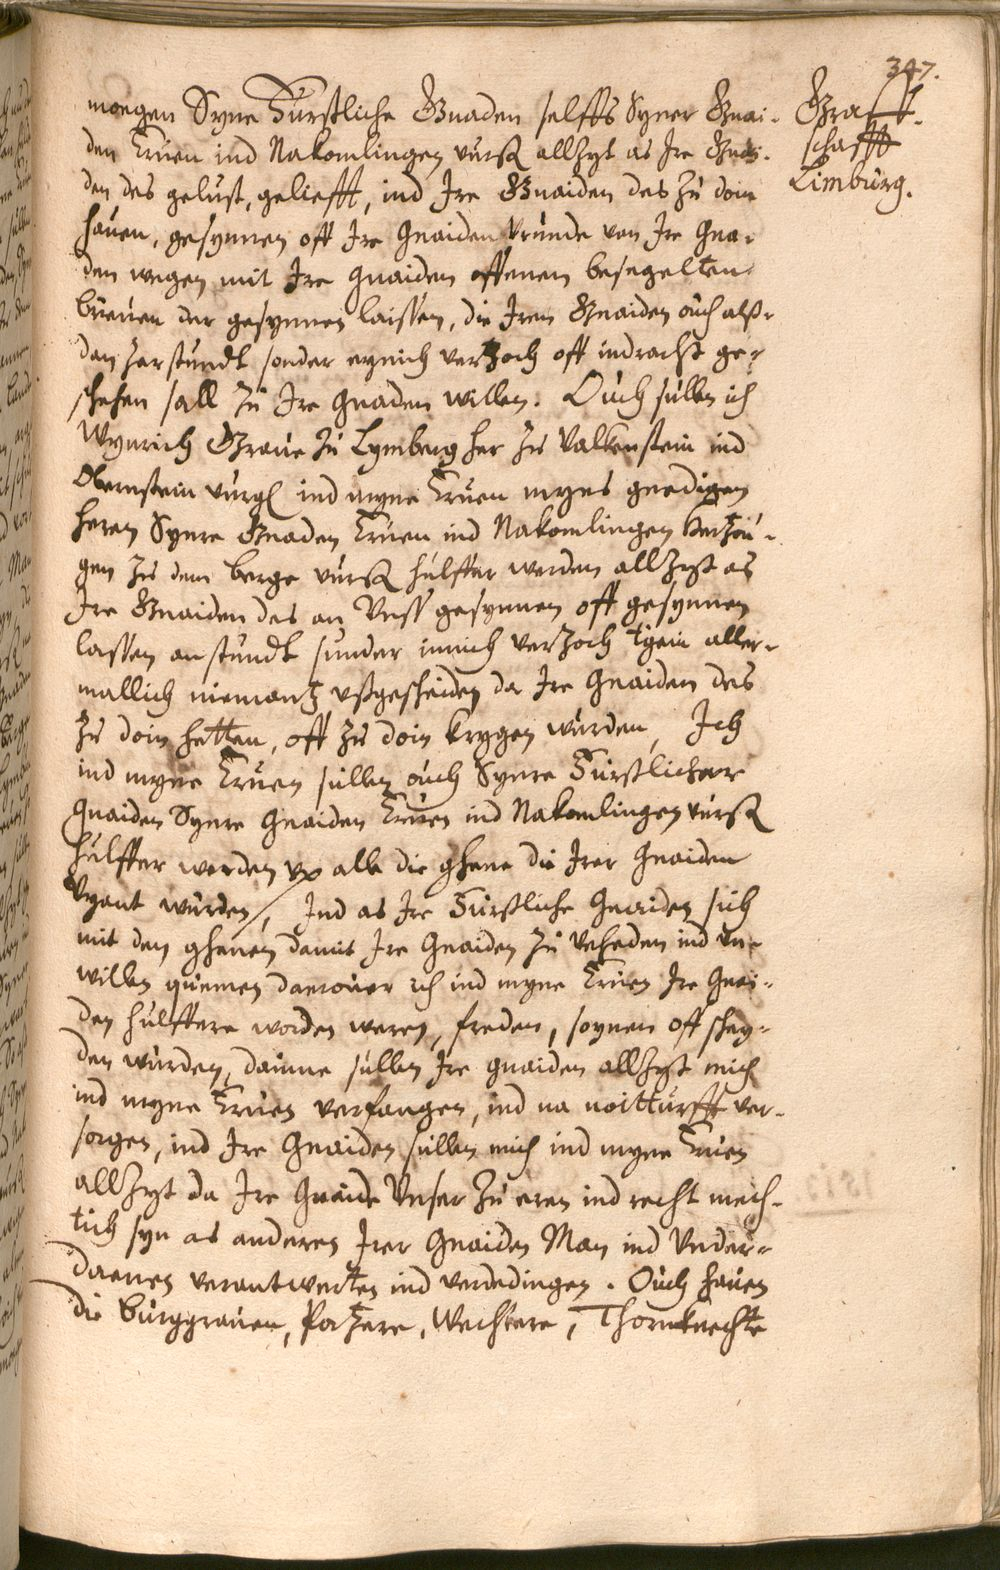 347.
Graff-
schafft
Limburg.
moegen Syne Furstliche Gnaden selffs Syner Gnai-
den Eruen ind Nakomlingen vurß allzyt as Ire Gnai-
den des gelust, geliefft, ind Ire Gnaiden des zu doin
hauen, gesynnen off Ire Gnaiden Vrunde van Ire Gna-
den wegen mit Ire Gnaiden offenen besegelten
brieuen der gesynnen laissen, die Iren Gnaiden ouch alß-
dan zerstundt sonder eynich verzoch off indracht ge-
schehen sall zu Ire Gnaden willen. Ouch sullen ich
Wynrich Graue zu Lymberg her zu Valkenstein ind
Obernstein vurgl ind myne Eruen myns gnedigen
heren Synre Gnaden Eruen ind Nakomlingen Hertzou-
gen zu dem Berge vurß hulffer werden allzyt as
Ire Gnaiden des an Vnss gesynnen off gesynnen
lassen anstundt sunder innich verzoch tgein aller-
mallich niemantz vßgescheiden da Ire Gnaiden des
zu doin hetten, off zu doin krygen wurden, Ich
ind myne Eruen sullen ouch Synre Furstlicher
Gnaiden Synre Gnaiden Eruen ind Nakomlingen vurß
hulffer werden vp alle die ghene die Irer Gnaiden
Vyant wurden, Ind as Ire Furstliche Gnaiden sich
mit den ghenen damit Ire Gnaiden zu Veheden ind vn-
willen quemen daerouer ich ind myne Eruen Ire Gnai-
den hulffere worden weren, freden, soynen off schey-
den wurden, dainne sullen Ire gnaiden allzyt mich
ind myne Eruen verfangen, ind na noitturfft ver-
sorgen, ind Ire Gnaiden sullen mich ind myne Eruen
allzyt da Ire Gnaide Vnser zu eren ind recht mech-
tich syn as anderen Irer Gnaiden Man ind Vnder-
daenen verantwerten ind verdedingen. Ouch hauen
die Burggrauen, Portzere, Wechtere, Thornknechte